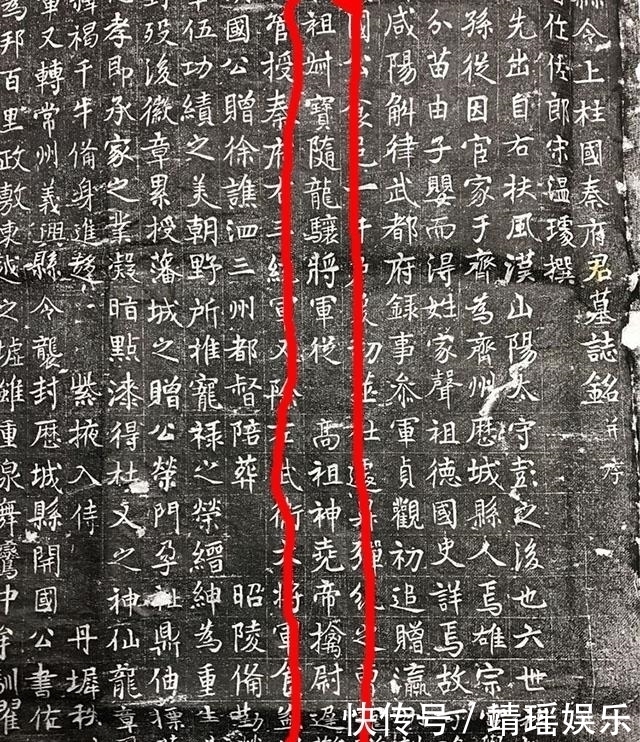 縣令上柱國秦府君墓誌銘并序
作佐郎宋温璩撰
先出自右扶風漢山陽太守彭之後也六世
孫從因官家于齊為齊州歷城縣人焉雄宗
分苗由子嬰而得姓家聲祖德國史詳焉故
咸陽斛律武都府錄事叅軍貞觀初追贈瀛
國公食邑一千戶
祖叔寶隨龍驤將軍從 高祖神堯帝擒尉遲
管授秦府右三統軍又除左武衛大將軍食
國公贈徐譙泗三州都督陪葬 昭陵備
軍伍功績之美朝野所推寵禄之榮縉紳為重
對歿後徽章累授藩城之贈公榮門孕祉鼎
孝即承家之業凝暗點漆得杜乂之神仙龍章
褐千牛備身進 紫掖入侍 丹墀秩
軍又轉常州義興縣令襲封歷城縣開國公書佐
為邦百里政敷東越之墟雖重泉舞鸞中牟馴翟
快传号/靖瑶娱乐